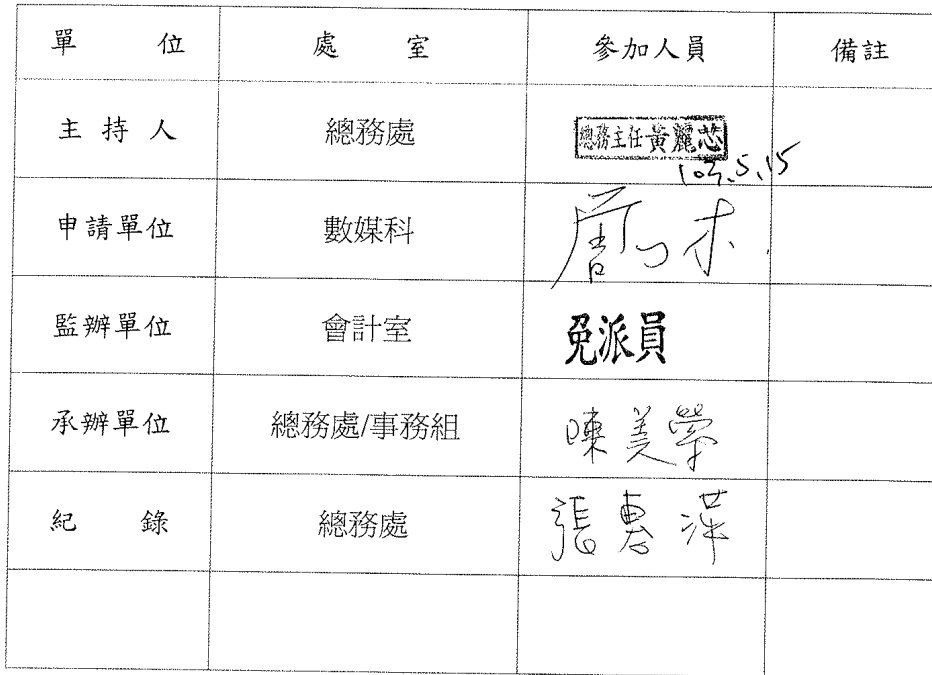 單 位 處 室 參加人員 備註
主 持 人 總務處 總務主任黃麗芯
5.15
申請單位 數媒科
監辦單位 會計室 免派員
承辦單位 總務處/事務組 陳美榮
紀 錄 總務處 張惠萍